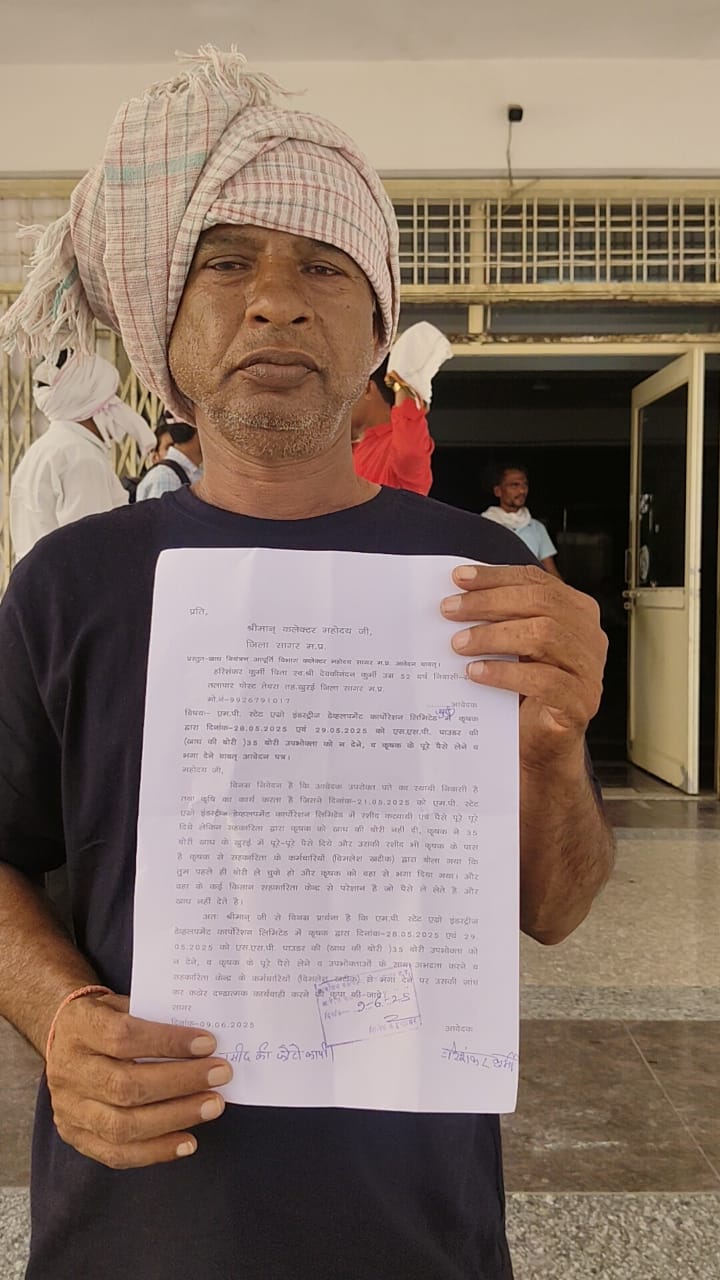 प्रति,
श्रीमान् कलेक्टर महोदय जी,
जिला सागर म.प्र.
प्रस्तुत-खाध नियंत्रण आपूर्ति विभाग कलेक्टर महोदय सागर म.प्र. आवेदन बाबत्।
हरिशंकर कुर्मी पिता स्व.श्री देवकीनंदन कुर्मी उम्र 52 वर्ष निवासी-
तलापार पोस्ट तेवरा तह.खुरई जिला सागर म.प्र.
मो.नं-9926791017
आवेदक
विषयः- एम.पी. स्टेट एग्रो इंडस्ट्रीज डेव्हलपमेंट कार्पोरेशन लिमिटेड में कृषक
द्वारा दिनांक-28.05.2025 एवं 29.05.2025 को एस.एस.पी. पाउडर की
(खाध की बोरी )35 बोरी उपभोक्ता को न देने, व कृषक के पूरे पैसे लेने व
भगा देने बावत् आवेदन पत्र।
महोदय जी,
विनम्र निवेदन है कि आवेदक उपरोक्त पते का स्थायी निवासी है
तथा कृषि का कार्य करता है जिसने दिनांक-21.05.2025 को एम.पी. स्टेट
एग्रो इंडस्ट्रीज डेव्हलपमेंट कार्पोरेशन लिमिटेड में रशीद कटवायी एवं पैसे पूरे पूरे
दिये लेकिन सहकारिता द्वारा कृषक को खाध की बोरी नही दी, कृषक ने 35
बोरी खाध के खुरई में पूरे-पूरे पैसे दिये और उसकी रशीद भी कृषक के पास
है कृषक से सहकारिता के कर्मचारियों (विमलेश खटीक) द्वारा बोला गया कि
तुम पहले ही बोरी ले चुके हो और कृषक को वहा से भगा दिया गया। और
वहा के कई किसान सहकारिता केन्द्र से परेशान है जो पैसे ले लेते है और
खाध नही देते है।
अतः श्रीमान् जी से विनम्र प्रार्थना है कि एम.पी. स्टेट एग्रो इंडस्ट्रीज
डेव्हलपमेंट कार्पोरेशन लिमिटेड में कृषक द्वारा दिनांक-28.05.2025 एवं 29.
05.2025 को एस.एस.पी. पाउडर की (खाध की बोरी )35 बोरी उपभोक्ता को
न देने, व कृषक के पूरे पैसे लेने व उपभोक्ताओं के साथ अभद्रता करने व
सहकारिता केन्द्र के कर्मचारियों (विमलेश खटीक) से भगा देने पर उसकी जांच
कर कठोर दण्डात्मक कार्यवाही करने की कृपा की जावे।
सागर
दिनांक-09.06.2025
आवेदक
9-6-25
रसीद की फोटो कापी
हरिशंकर कुर्मी